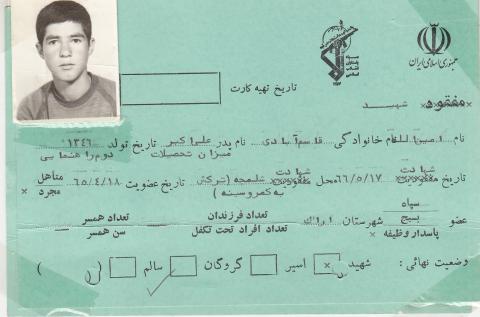 جمهوری اسلامی ایران
تاریخ تهیه کارت
مفقود شهید
نام امین الله نام خانوادگی قاسم آبادی نام پدر علی اکبر تاریخ تولد ۱۳۴۶
میزان تحصیلات دوم راهنمایی
شهادت شهادت
تاریخ مفقودیت ۶۶/۵/۱۷ محل مفقودیت شلمچه (ترکش تاریخ عضویت ۶۵/۴/۱۸ متاهل
به کمر و سینه) مجرد ×
سپاه
عضو بسیج شهرستان اراک تعداد فرزندان تعداد همسر
پاسدار وظیفه × تعداد افراد تحت تکفل سن همسر
وضعیت نهائی : شهید × اسیر گروگان سالم ( )